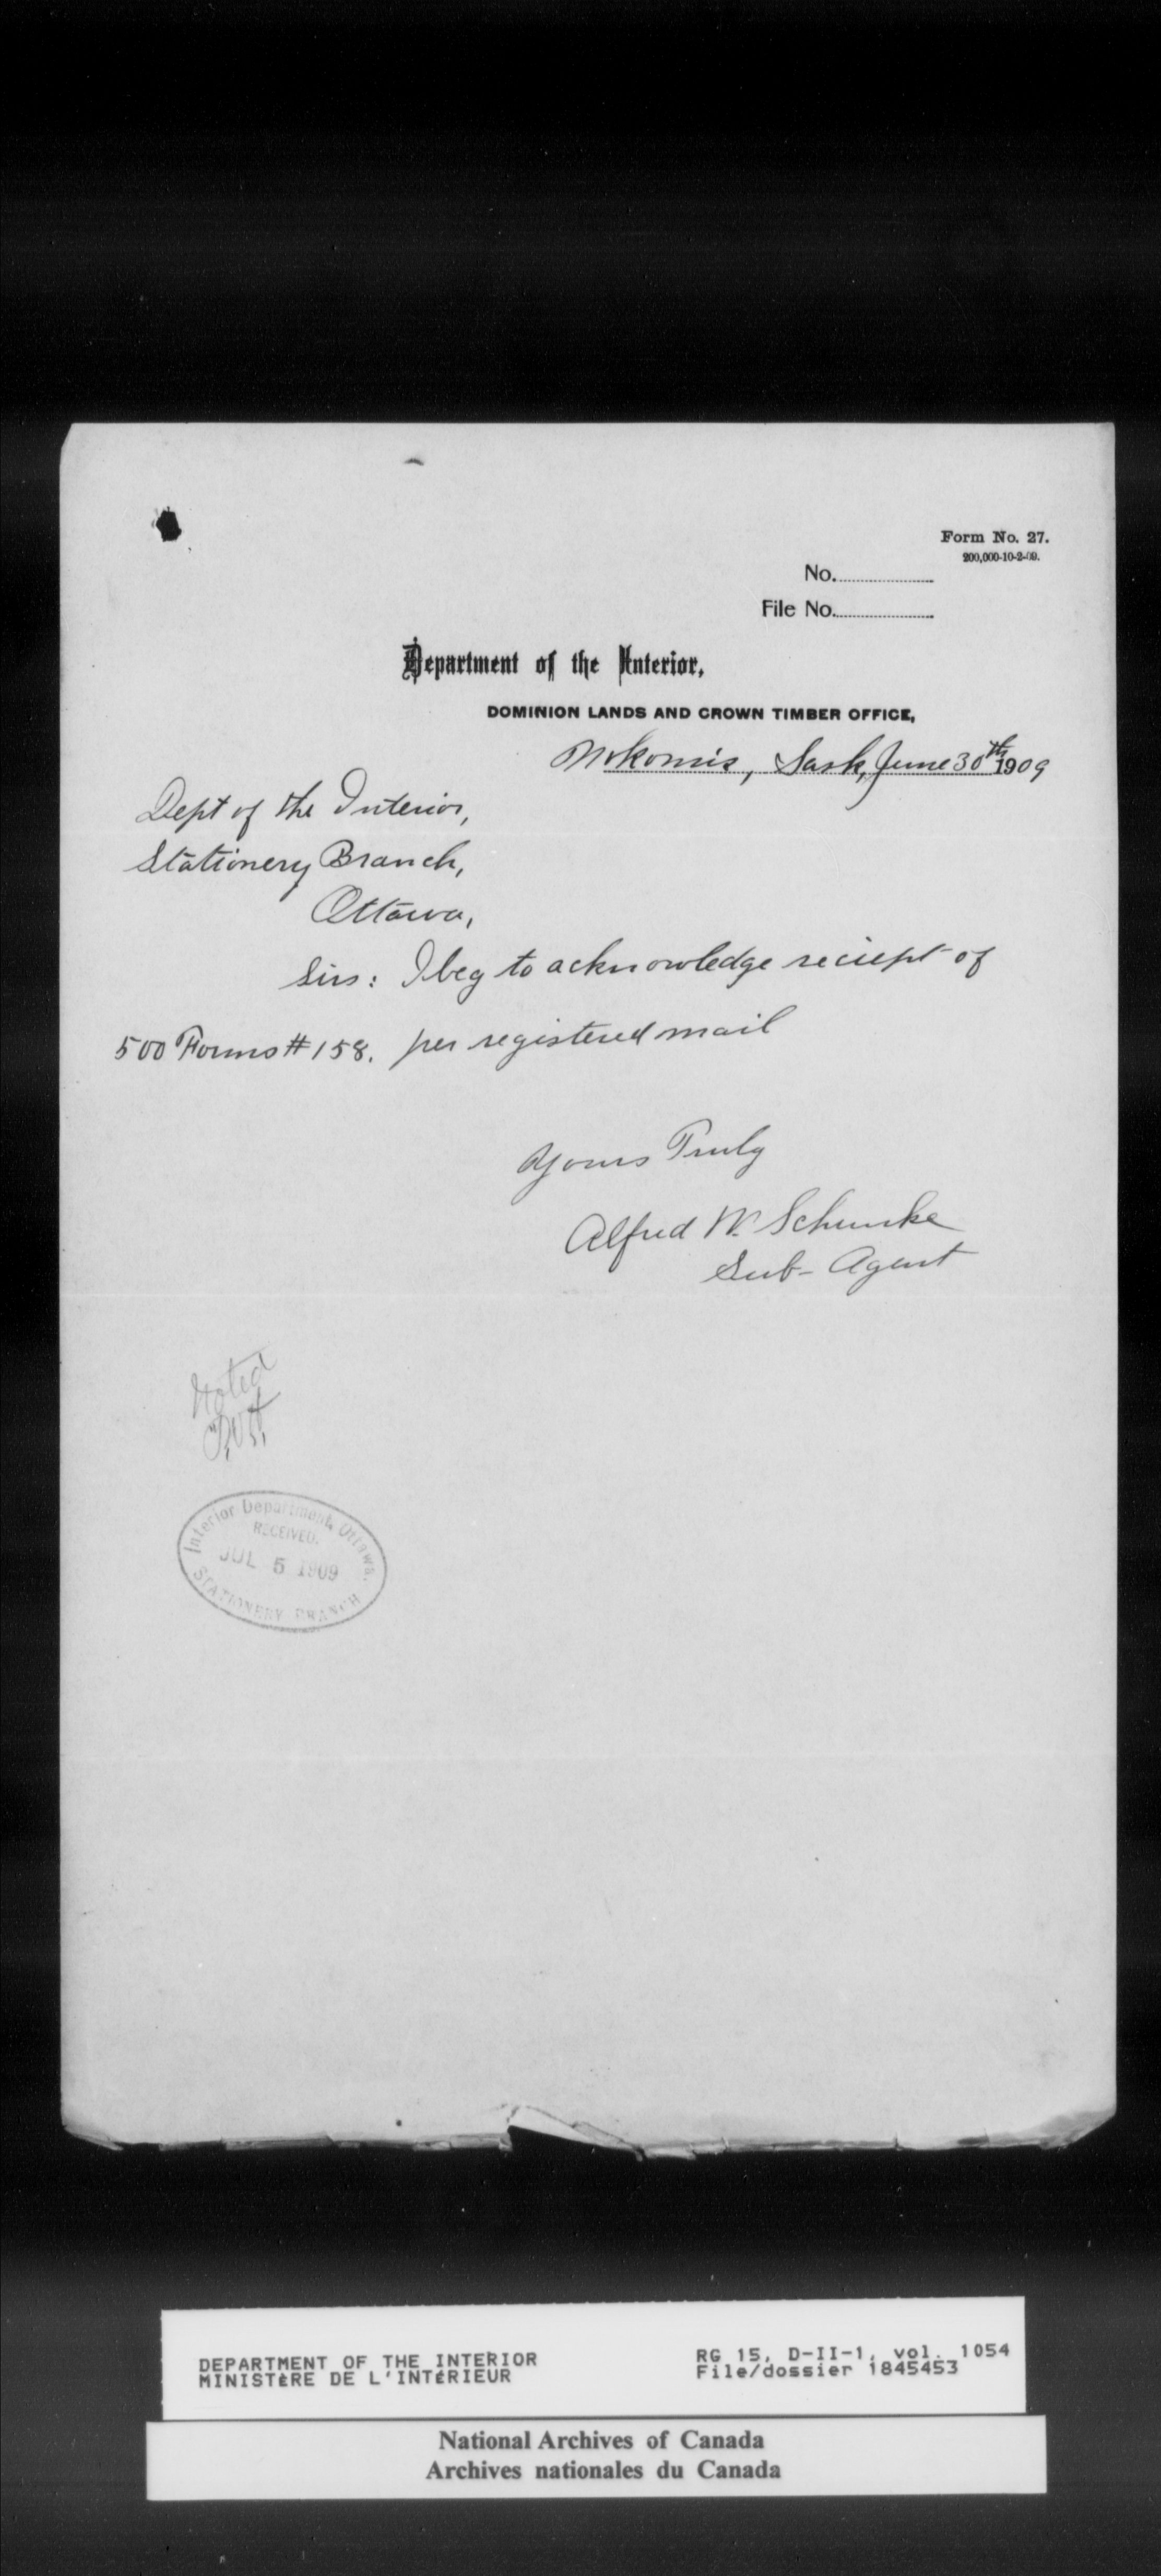 Form No. 27.
200,000-10-2-09.
No.
File No.
Department of the Interior,
DOMINION LANDS AND CROWN TIMBER OFFICE,
Nokomis, Sask, June 30th 1909
Dept of the Interior,
Stationery Branch,
Ottawa,
Sirs: I beg to acknowledge reciept of
500 Forms # 158. per registered mail
Yours Truly
Alfred W. Schunke
Sub-Agent
Noted
Interior Department, Ottawa.
RECEIVED.
JUL 5 1909
STATIONERY BRANCH
DEPARTMENT OF THE INTERIOR
MINISTÈRE DE L'INTÉRIEUR
RG 15, D-II-1, vol. 1054
File/dossier 1845453
National Archives of Canada
Archives nationales du Canada